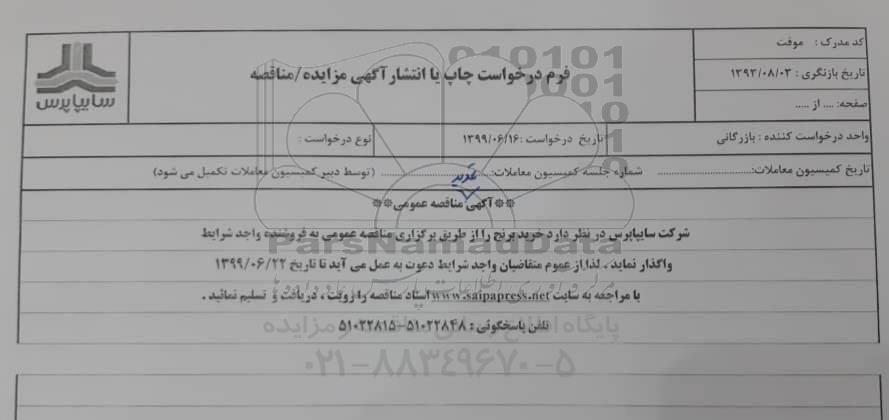 کد مدرک : موقت
تاریخ بازنگری : ۱۳۹۳/۰۸/۰۳
صفحه: .... از .....
فرم درخواست چاپ یا انتشار آگهی مزایده/مناقصه
سایپاپرس
واحد درخواست کننده : بازرگانی
تاریخ درخواست :۱۳۹۹/۰۶/۱۶
نوع درخواست :
تاریخ کمیسیون معاملات:............................
شماره جلسه کمیسیون معاملات:............................ (توسط دبیر کمیسیون معاملات تکمیل می شود)
تمدید
**آگهی مناقصه عمومی**
شرکت سایپاپرس در نظر دارد خرید برنج را از طریق برگزاری مناقصه عمومی به فروشنده واجد شرایط
واگذار نماید . لذا از عموم متقاضیان واجد شرایط دعوت به عمل می آید تا تاریخ ۱۳۹۹/۰۶/۲۲
با مراجعه به سایت www.saipapress.net اسناد مناقصه را رویت ، دریافت و تسلیم نمائید .
تلفن پاسخگوئی : ۵۱۰۲۲۸۴۸-۵۱۰۲۲۸۱۵
ParsNamadData
مرکز فرآوری اطلاعات پارس نماد داده ها
پایگاه اطلاع رسانی مناقصه و مزایده
۰۲۱-۸۸۳۴۹۶۷۰-۵